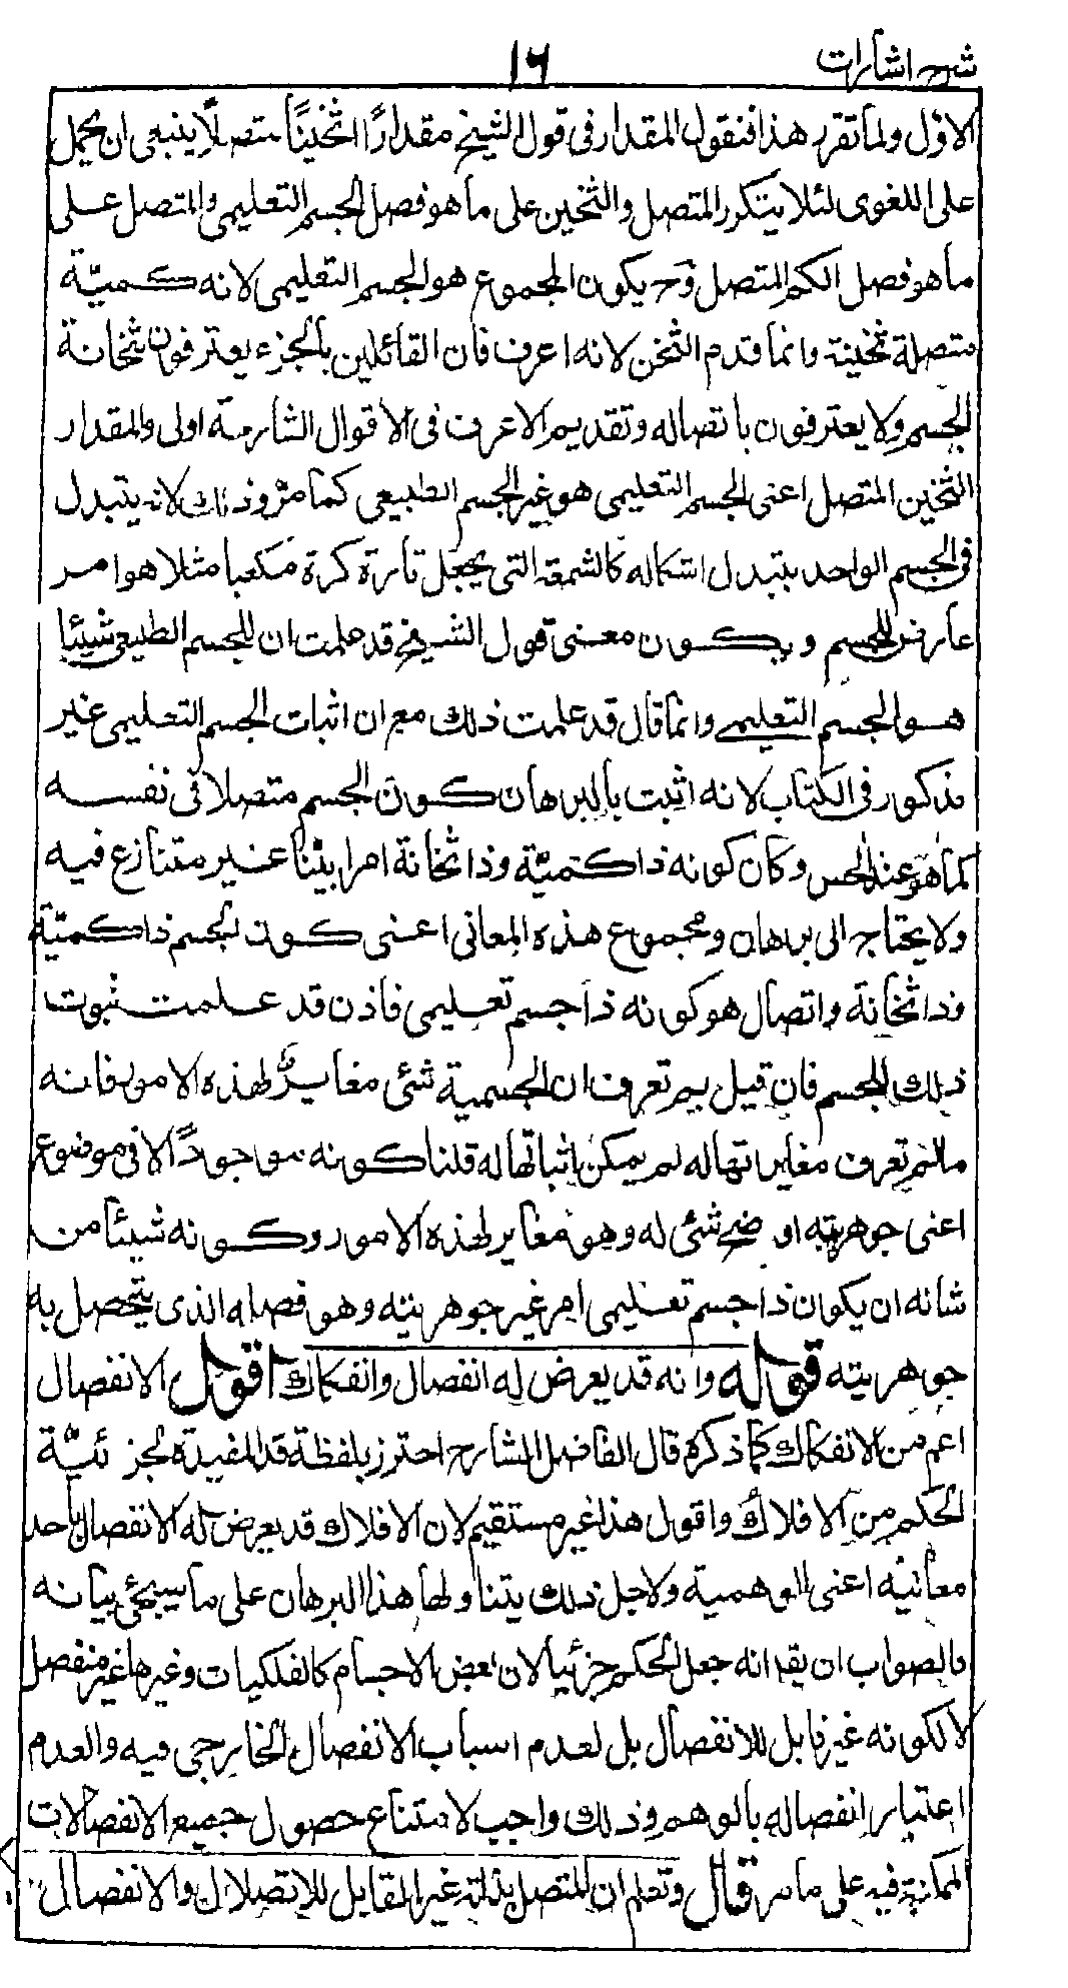 شرح اشارات
١٦
الاوّل ولما تقرر هذا فنقول المقدار فى قول الشيخ مقدارًا ثخينًا متصلاً ينبغى ان يحمل
على اللغوى لئلا يتكرر المتصل والثخين على ما هو فصل الجسم التعليمى والمتصل على
ما هو فصل الكم المتصل وح يكون المجموع هو الجسم التعليمى لانه كميّة
متصلة ثخينة وانما قدم الثخن لانه اعرف فان القائلين بالجزء يعترفون بثخانة
الجسم ولا يعترفون باتصاله وتقديم الاعرف فى الاقوال الشارحة اولى والمقدار
الثخين المتصل اعنى الجسم التعليمى هو غير الجسم الطبيعى كما مرّ وذلك لانه يتبدل
فى الجسم الواحد بتبدل اشكاله كالشمعة التى يجعل تارة كرة مكعبا مثلا هو امر
عارض للجسم ويكون معنى قول الشيخ قد علمت ان للجسم الطبيعى شيئا
هو الجسم التعليمى وانما قال قد علمت ذلك مع ان اثبات الجسم التعليمى غير
مذكور فى الكتاب لانه اثبت بالبرهان كون الجسم متصلا فى نفسه
كما هو عند الحس وكان كونه ذا كميّة وذا ثخانة امرا بيّنا غير متنازع فيه
ولا يحتاج الى برهان ومجموع هذه المعانى اعنى كون الجسم ذا كميّة
وذا ثخانة واتصال هو كونه ذا جسم تعليمى فاذن قد علمت ثبوت
ذلك للجسم فان قيل بم تعرف ان الجسمية شئ مغاير لهذه الامور فانه
مالم تعرف مغايراتها له لم يمكن اثباتها له قلنا كونه موجودًا لا فى موضوع
اعنى جوهريته او ضح شئ له وهو مغاير لهذه الامور وكونه شيئا من
شانه ان يكون ذا جسم تعليمى امر غير جوهريته وهو فصله الذى يتحصل به
جوهريته قوله وانه قد يعرض له انفصال وانفكاك اقول الانفصال
اعم من الانفكاك كما ذكره قال الفاضل الشارح احترز بلفظة قد المفيدة لجزئيّة
الحكم من الافلاك واقول هذا غير مستقيم لان الافلاك قد يعرض له الانفصال باحد
معانيه اعنى الوهمية ولاجل ذلك يتناولها هذا البرهان على ما سيجئ بيانه
فالصواب ان يقد انه جعل الحكم جزئيا لان بعض الاجسام كالفلكيات وغيرها غير منفصل
لا لكونه غير قابل للانفصال بل لعدم اسباب الانفصال الخارجى فيه والعدم
اعتبار انفصاله بالوهم وذلك واجب لامتناع حصول جميع الانفصالات
الممكنة فيه على ما مر قال وتعلم ان المتصل بذاته غير القابل للاتصال والانفصال